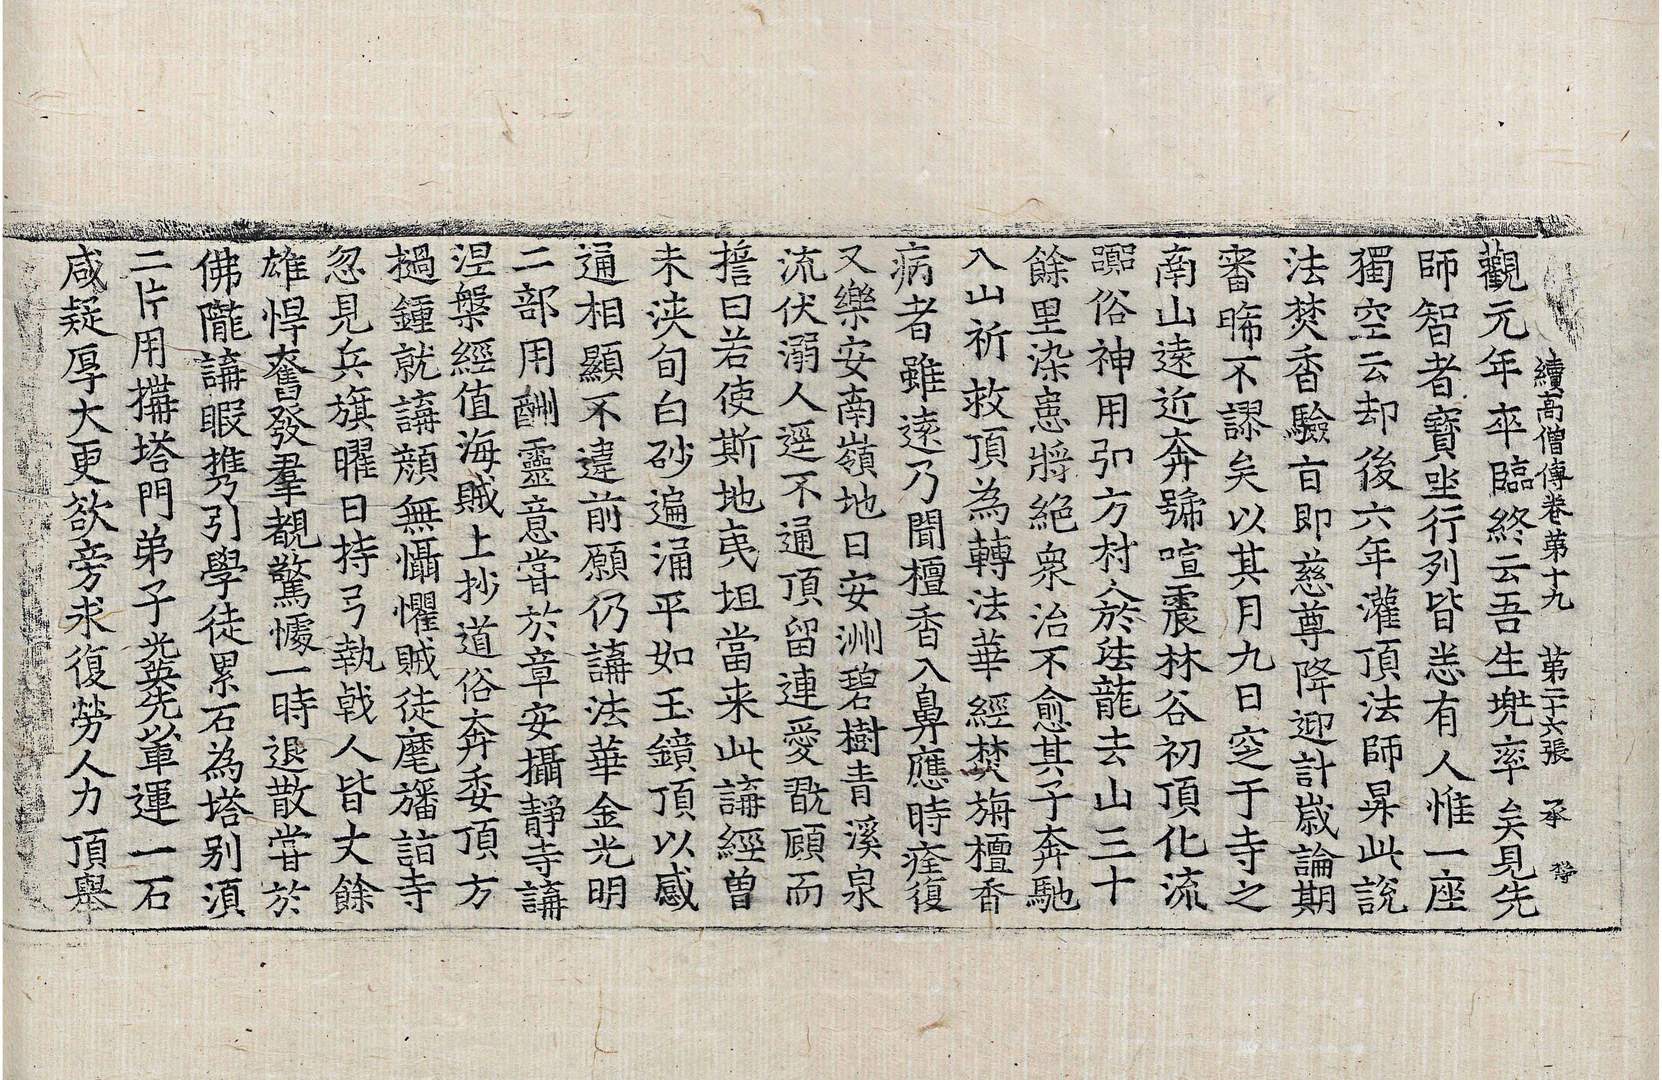 續高僧傳卷第十九　第二十六張　承
觀元年卒臨終云吾生兠率矣見先
師智者寶坐行列皆悉有人惟一座
獨空云却後六年灌頂法師昇此說
法焚香驗旨即慈尊降迎計歲論期
審晞不謬矣以其月九日窆于寺之
南山遠近奔號喧震林谷初頂化流
囂俗神用弘方村人於法龍去山三十
餘里染患將絕衆治不愈其子奔馳
入山祈救頂為轉法華經焚旃檀香
病者雖遠乃聞檀香入鼻應時痊復
又樂安南嶺地曰安洲碧樹青溪泉
流伏溺人逕不通頂留連愛翫顧而
誓曰若使斯地夷坦當来此講經曽
未浹旬白砂遍涌平如玉鏡頂以感
通相顯不違前願仍講法華金光明
二部用酬靈意嘗於章安攝靜寺講
涅槃經值海賊上抄道俗奔委頂方
撾鍾就講顔無懾懼賊徒麾旛詣寺
忽見兵旗曜日持弓執戟人皆丈餘
雄悍奮發羣覩驚懅一時退散甞於
佛隴講暇携引學徒累石為塔别須
二片用搆塔門弟子光英先以車運一石
咸疑厚大更欲旁求復勞人力頂舉